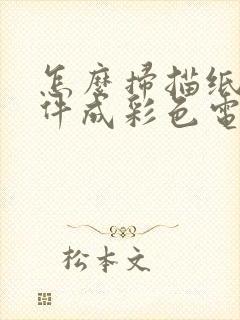 怎麼掃描纸
件成彩色電
松本文